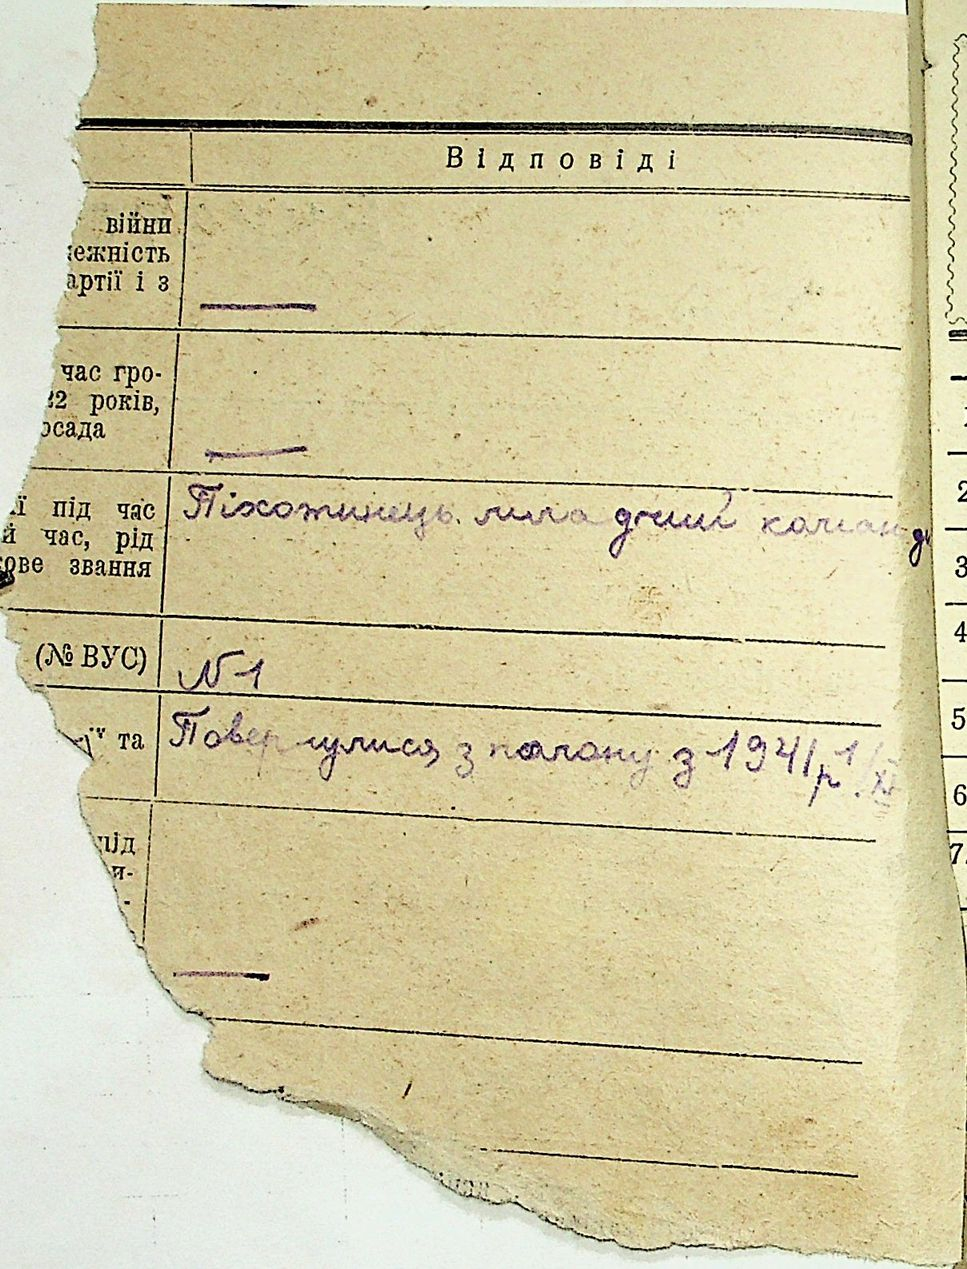 Відповіді
війни
лежність
артії і з
час гро-
22 років,
осада
ї під час
й час, рід
кове звання
Піхотинець командир
(№ ВУС)
N 1
та
Повернулися з полону з 1941 р. 1/XI
під
и-
-
2
3
4
5
6
7.